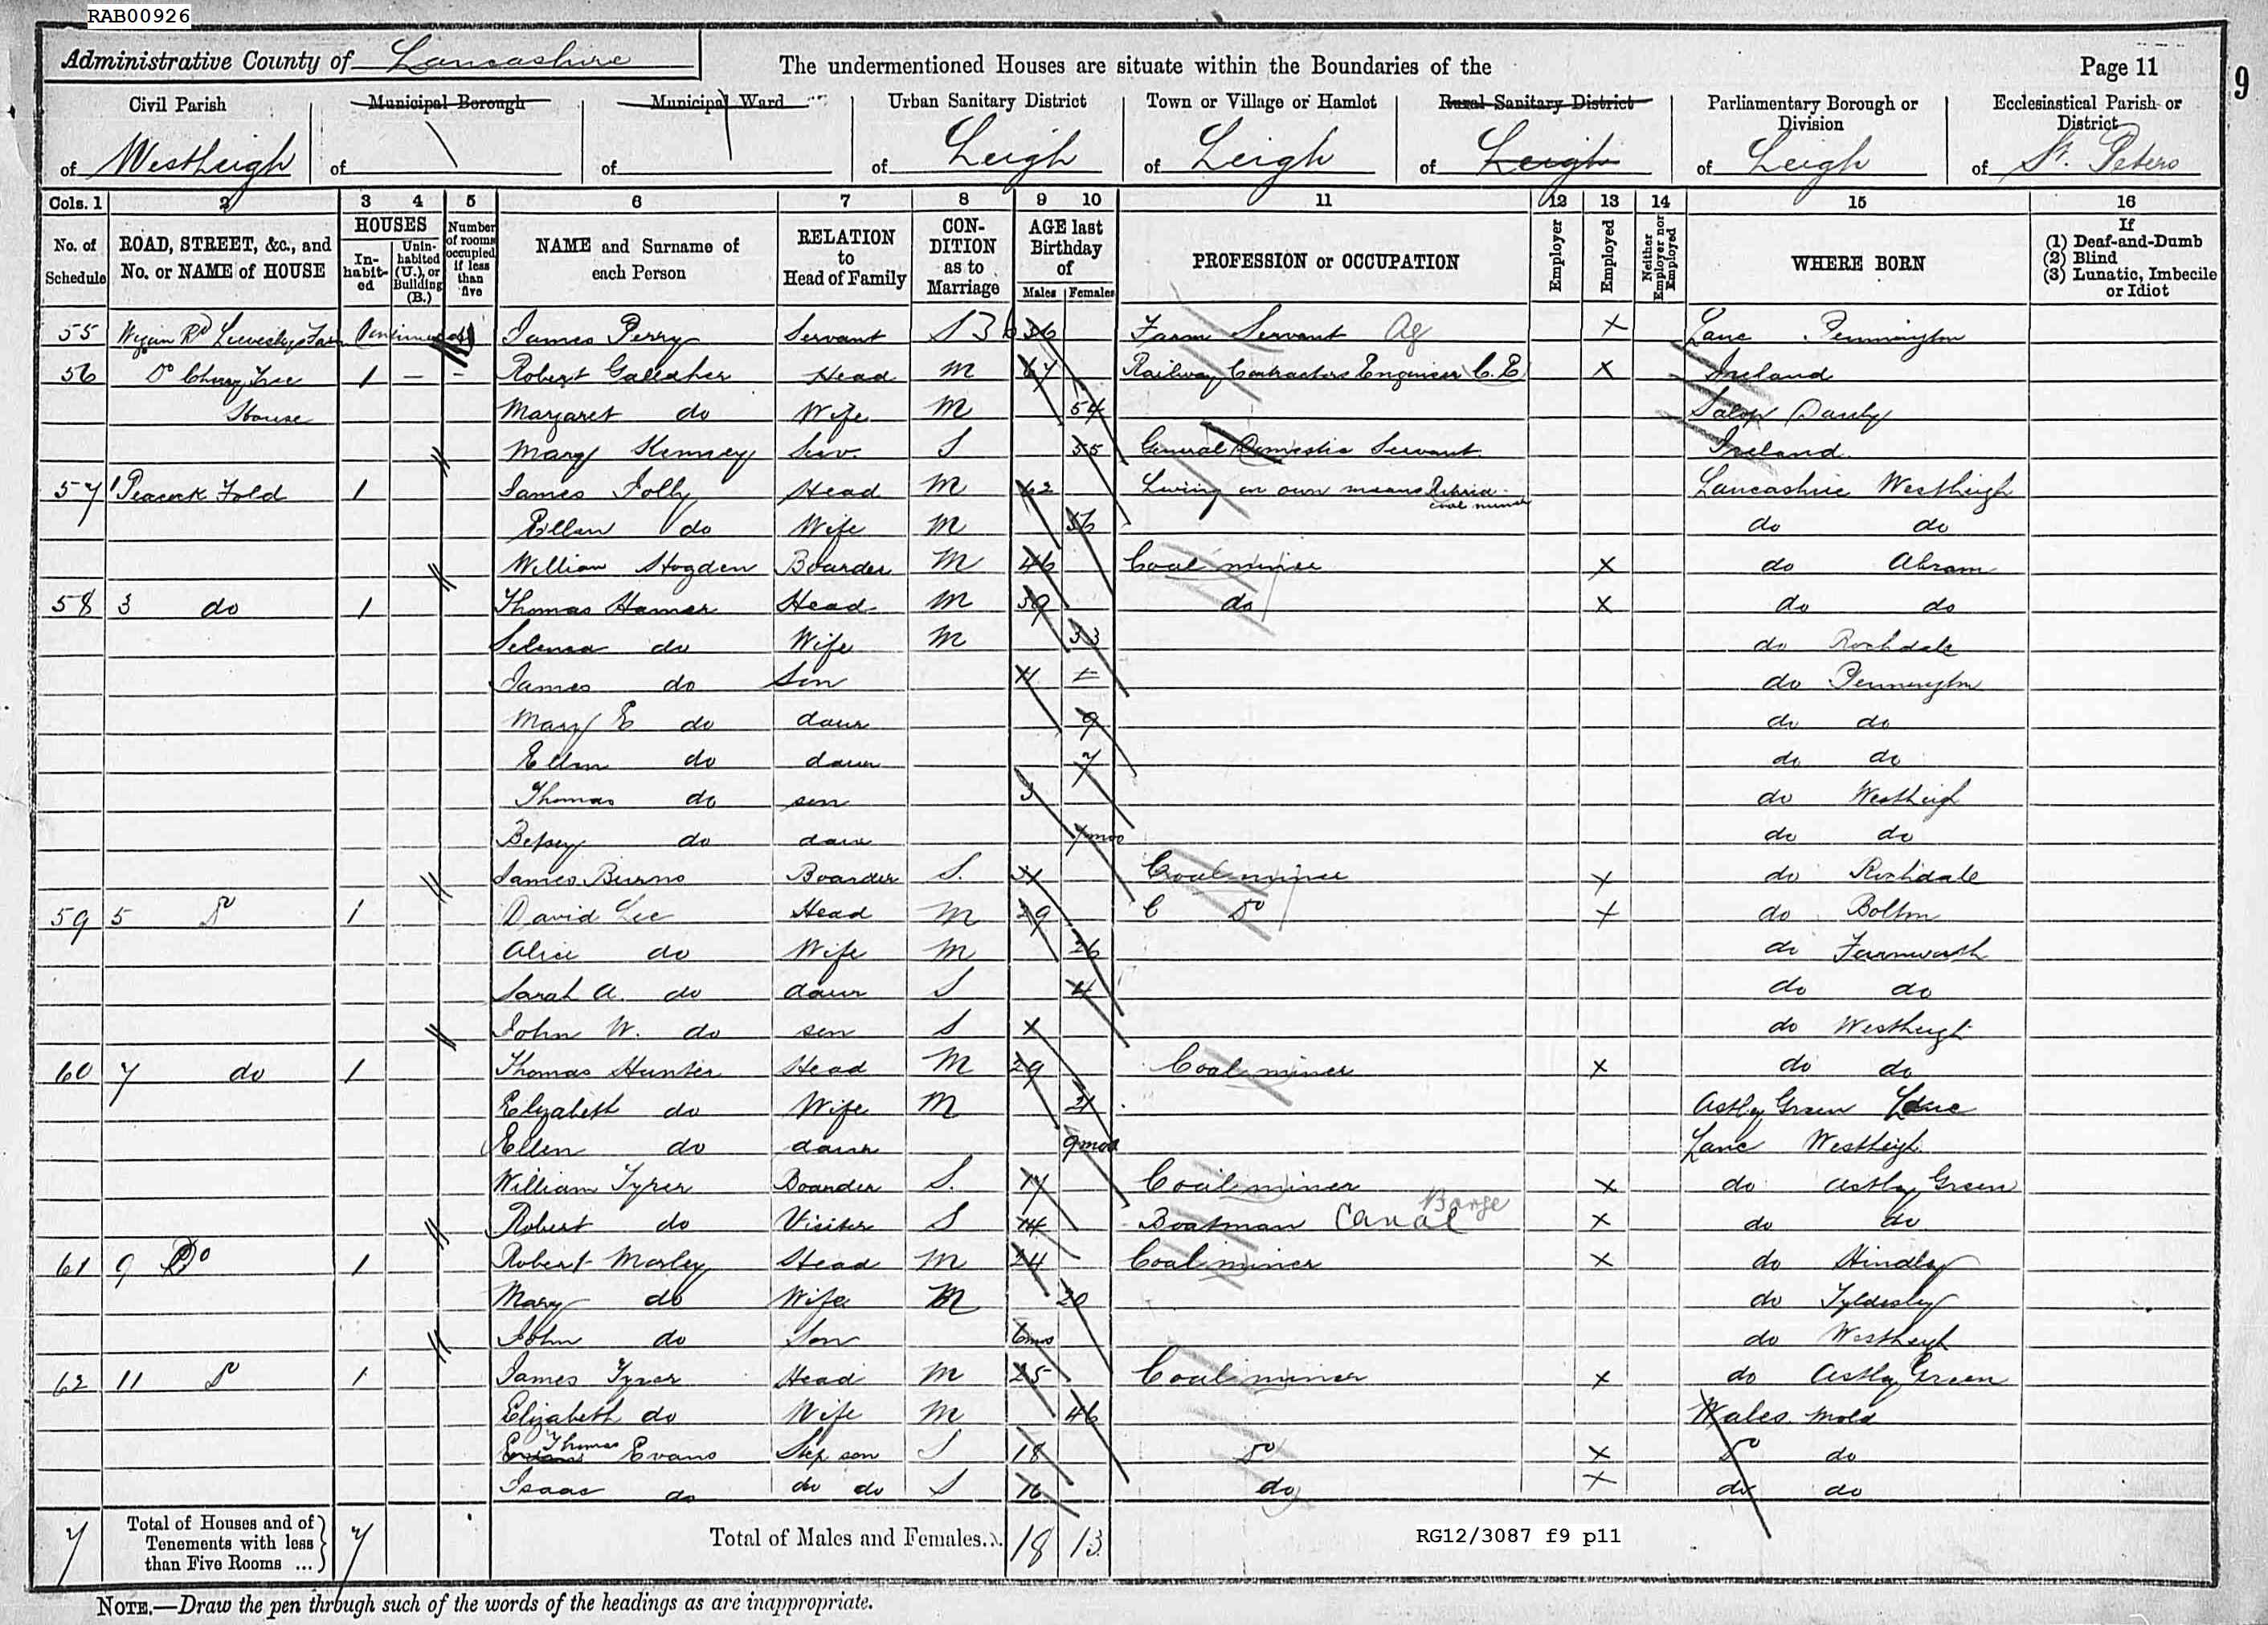 RAB00926
Administrative County of Lancashire The undermentioned Houses are situate within the Boundaries of the Page 11 9
Civil Parish Municipal Borough Municipal Ward Urban Sanitary District Town or Village or Hamlet Rural Sanitary District Parliamentary Borough or Division Ecclesiastical Parish or District
of Westleigh of of of Leigh of Leigh of Leigh of Leigh of St. Peters
Cols. 1 2 3 4 5 6 7 8 9 10 11 12 13 14 15 16
No. of Schedule ROAD, STREET, &c., and No. or NAME of HOUSE HOUSES In-habit-ed Unin-habited (U.), or Building (B.) Number of rooms occupied if less than five NAME and Surname of each Person RELATION to Head of Family CON-DITION as to Marriage AGE last Birthday of Males Females PROFESSION or OCCUPATION Employer Employed Neither Employer nor Employed WHERE BORN If (1) Deaf-and-Dumb (2) Blind (3) Lunatic, Imbecile or Idiot
55 Wigan Rd Continued James Perry Servant S 36 Farm Servant Ag X Lanc Pennington
56 Do Cherry Tree 1 – – Robert Gallagher Head M 67 Railway Contractors Engineer C.E X Ireland
House Margaret do Wife M 54 Salop
Mary Kenney Serv. S 55 General Domestic Servant Ireland
57 1 Peacock Fold 1 James Jolly Head M 62 Living on own means Retired coal miner Lancashire Westleigh
Ellen do Wife M 56 do do
William Hogden Boarder M 46 Coal miner X do Abram
58 3 do 1 Thomas Hamer Head M 39 do X do do
Selena do Wife M 33 do Rochdale
James do Son 11 do Pennington
Mary E do daur 9 do do
Ellen do daur 7 do do
Thomas do son 3 do Westleigh
Betsey do daur 7 mos do do
James Burns Boarder S. Coal miner X do Rochdale
59 5 Do 1 David Lee Head M 29 C Do X do Bolton
Alice do Wife M 26 do Farnworth
Sarah A. do daur S 4 do do
John W. do son S do Westleigh
60 7 do 1 Thomas Hunter Head M 29 Coal miner X do do
Elizabeth do Wife M 21 Astley Green Lanc
Ellen do daur 9 mos Lanc Westleigh
William Tyrer Boarder S. 17 Coal miner X do Astley Green
Robert do Visitor S 14 Boatman Canal Barge X do do
61 9 Do 1 Robert Morley Head M 24 Coal miner X do Hindley
Mary do Wife M 20 do Tyldesley
John do Son 6 mos do Westleigh
62 11 Do 1 James Tyrer Head M 25 Coal miner X do Astley Green
Elizabeth do Wife M 46 Wales Mold
Thomas Evans Step son S 18 Do X Do do
Isaac do do do S 16 do X do do
7 Total of Houses and of Tenements with less than Five Rooms ... 7 Total of Males and Females... 18 13
RG12/3087 f9 p11
NOTE.—Draw the pen through such of the words of the headings as are inappropriate.